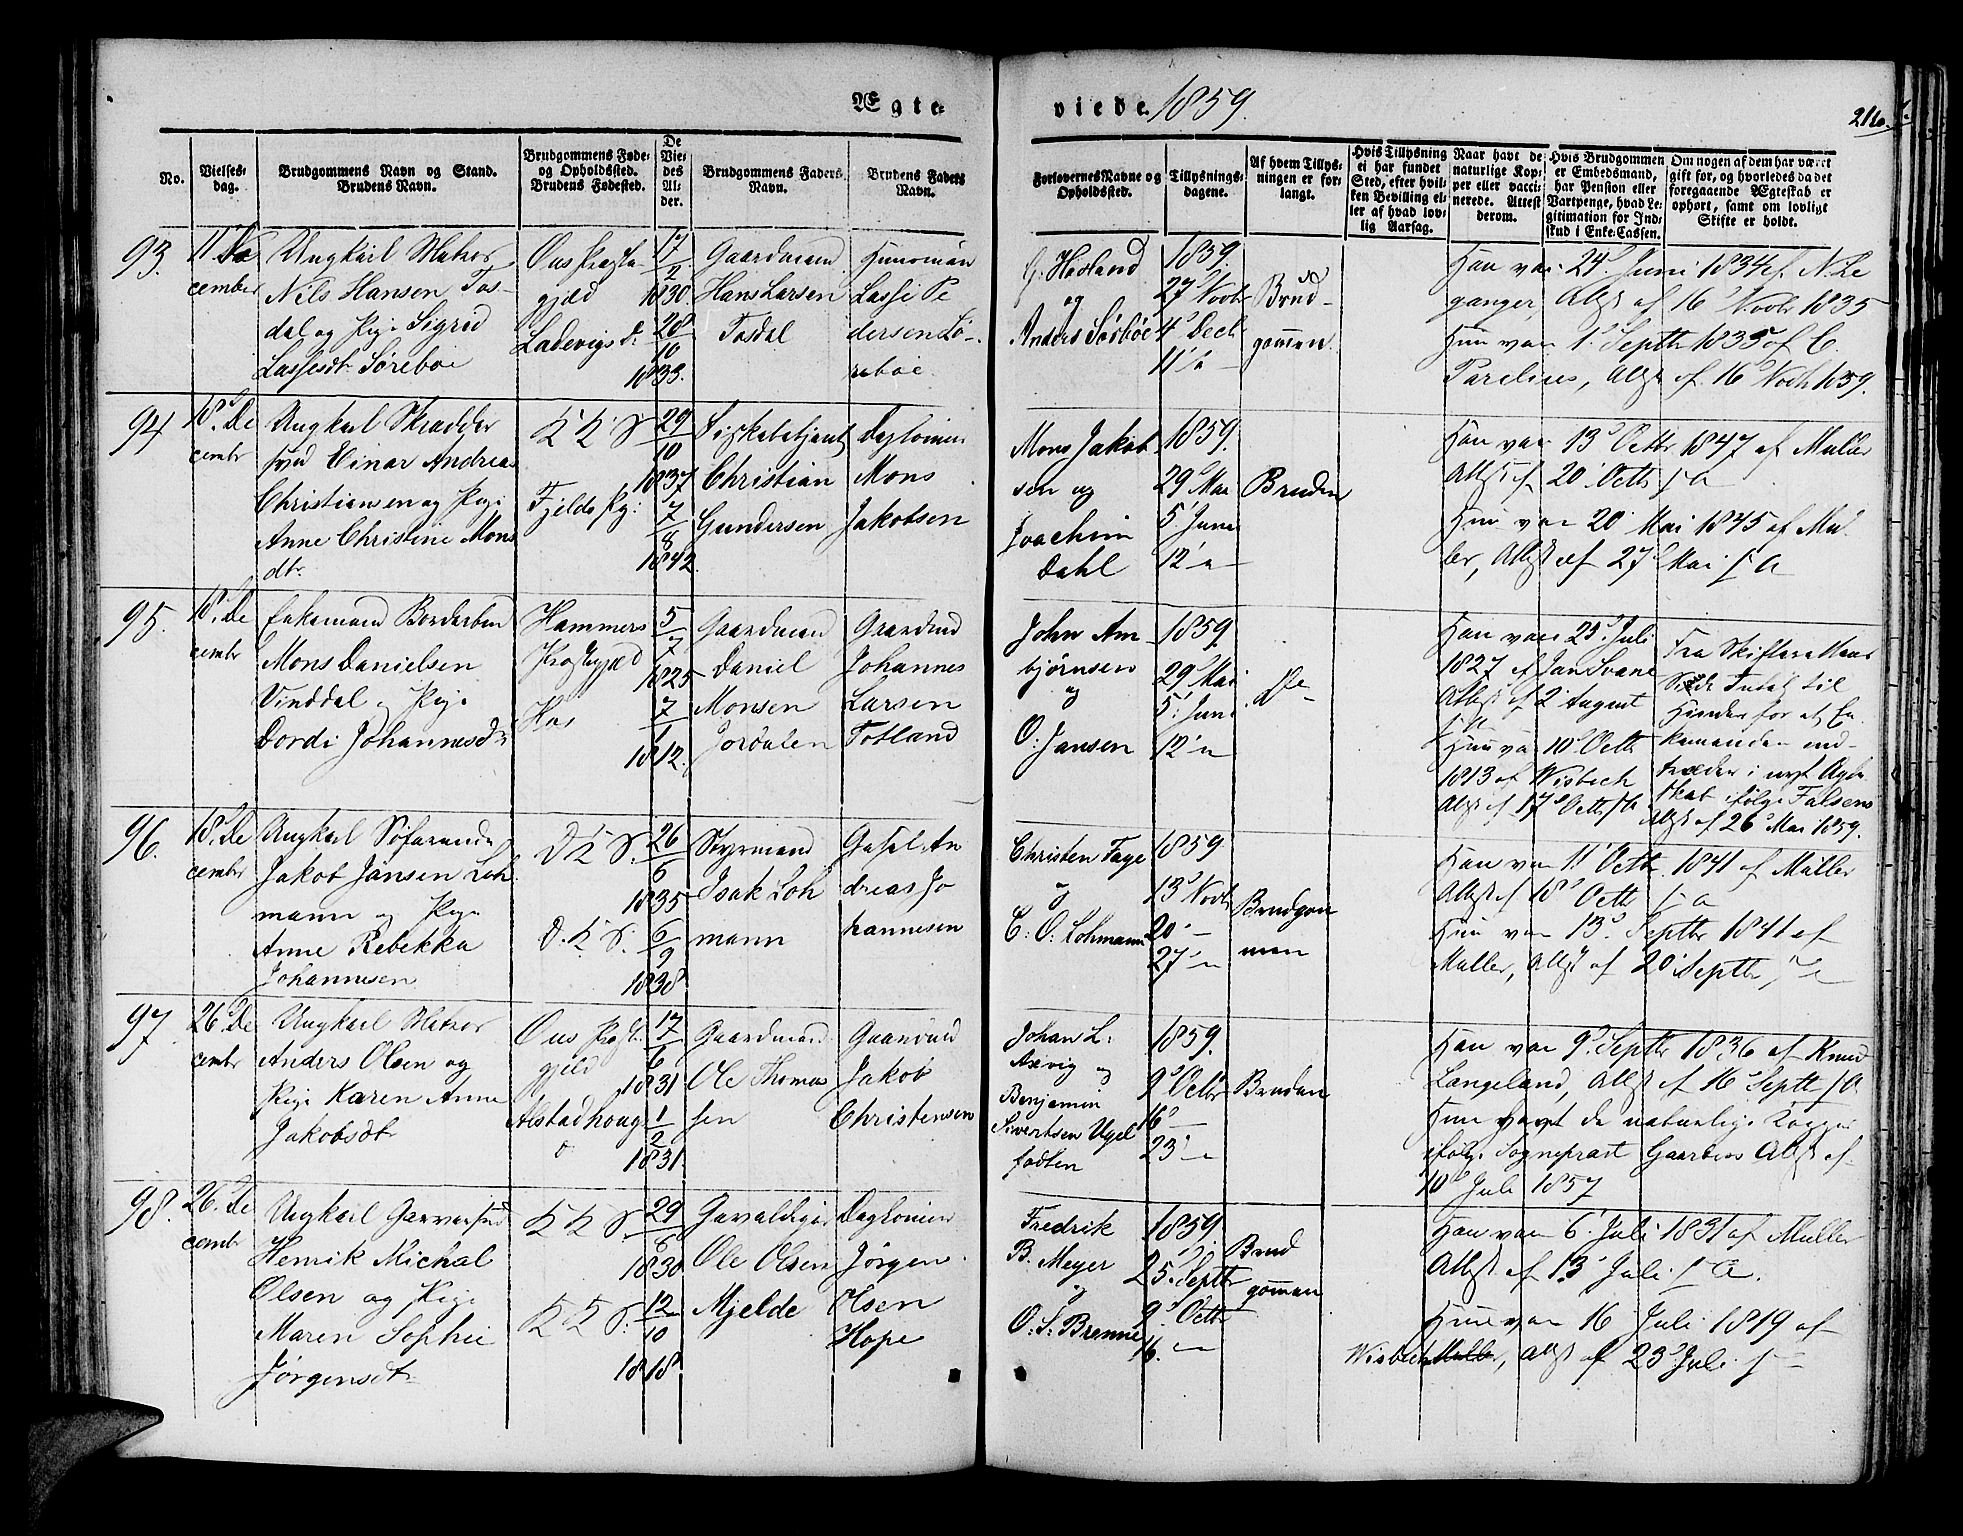 Ægte-
viede 1859.
216.
No.
Vielses-
dag.
Brudgommens Navn og Stand.
Brudens Navn.
Brudgommens Føde-
og Opholdssted.
Brudens Fødested.
De
Vie-
des
Al-
der.
Brudgommens Faders
Navn.
Brudens Faders
Navn.
Forlovernes Navne og
Opholdssted.
Tillysnings-
dagene.
Af hvem Tillys-
ningen er for-
langt.
Hvis Tillysning
ei har fundet
Sted, efter hvil-
ken Bevilling el-
ler af hvad lov-
lig Aarsag.
Naar havt de
naturlige Kop-
per eller vacci-
nerede. Attest
derom.
Hvis Brudgommen
er Embedsmand,
har Pension eller
Vartpenge, hvad Le-
gitimation for Ind-
skud i Enke-Cassen.
Om nogen af dem har været
gift før, og hvorledes da det
foregaaende Ægteskab er
ophørt, samt om lovligt
Skifte er holdt.
93.
11' De
cember
Ungkarl Matros
Nils Hansen Tos-
dal og Pige Sigrid
Lassesdt Søreboe
Ous Præste
gjeld
Ladevigs d:
17
2
1830.
28
10
1833.
Gaardmand
Hans Larsen
Tosdal
Huusmand
Lasse Pe
dersen Sø-
reboe.
G: Hesland
og
Anders Sørboe
1859.
27' Novbr
4' Decb
11' "
Brud-
gommen.
Han var 24' Juni 1834 af N. Le
ganger, Attst af 16' Novbr 1835
Hun var 1' Septbr 1835 af C.
Parelius, Attst af 16' Novb 1859.
94
18' De
cembr
Ungkarl Skrædder
svd Einar Andreas
Christiansen og Pige
Anne Christine Mons
dtr.
K K S
Fjelds Pg:
29
10
1837
7
8
1842.
Christian
Gundersen
Daglønner
Mons
Jakobsen
Mons Jakob
sen og
Joachim
Dahl
1859.
29' Mai
5' Juni
12' "
Bruden
Han var 13' Octbr 1847 af Müller
Attst af 20' Octb s A
Hun var 20' Mai 1845 af Mül
ler, Attst af 27' Mai s A
95.
18' De
cembr
Enkemand Bordarbeid
Mons Danielsen
Vinddal og Pige
Dordi Johannesdtr
Hammers
Præstegjæld
Hos
5
7
1825
7
1
1812.
Gaardmand
Daniel
Monsen
Jordalen
Gaardmd
Johannes
Larsen
Totland
John Am-
bjørnsen
og
O: Jansen
1859.
29' Mai
5' Juni
12' "
Do
Han var 25' Juli
1827 af Jan Svane
Attst af 2' August
s A
Hun var 10' Octb
1813 af Wisbech
Attst af 17' Octb s A
Fra Skifteretten
til
Hinder for at En
kemanden ind-
træder i nyt Ægte
skab ifølge Falsens
Attst af 26' Mai 1859.
96.
18' De
cembr
Ungkarl Søfarende
Jakob Jansen Loh
mann og Pige
Anne Rebekka
Johannesen
D K S.
D. K S.
26
6
1835
6
9
1838
Styrmand
Isak Loh
mann
An
dreas Jo
hannesen
Christen Faye
og
C: O: Lohmann
1859
13' Novbr
20' —
27' "
Brudgom
men
Han var 11' Octb. 1841 af Müller
Attst af 18' Octb s A
Hun var 13' Septbr 1841 af
Müller, Attst af 20' Septbr, s A
97.
26' De
cembr
Ungkarl Matros
Anders Olsen og
Pige Karen Anne
Jakobsdt
Ous Præste
gjeld
Alstadhoug
17
6
1831
1
2
1831.
Gaardmand
Ole Thomas
sen
Gaardmd
Jakob
Christensen
Johan L:
Axvig og
Benjamin
Sivertsen Ugel
fodten
1859.
9' Octbr
16' —
23' "
Bruden
Han var 9' Septbr 1836 af Knud
Langeland, Attst af 16' Septb s A
Hun havt de naturlige Kopper
ifølge Sogneprest Gaarders Attst af
10' Juli 1857
98.
26' De
cembr
Ungkarl Garversvd
Henrik Michal
Olsen og Pige
Maren Sophie
Jørgensdt
K K S
K K S:
29
6
1830
12
10
1818.
Gevaldiger
Ole Olsen
Mjelde
Daglønner
Jørgen
Olsen
Hope
Fredrik
B. Meyer
og
O: S: Brenne
1859.
25' Septbr
9' Octbr
16. "
Brud
gommen
Han var 6' Juli 1831 af Müller
Attst af 13' Juli s A.
Hun var 16 Juli 1819 af
Wisbech Müller, Attst af 23' Juli s —